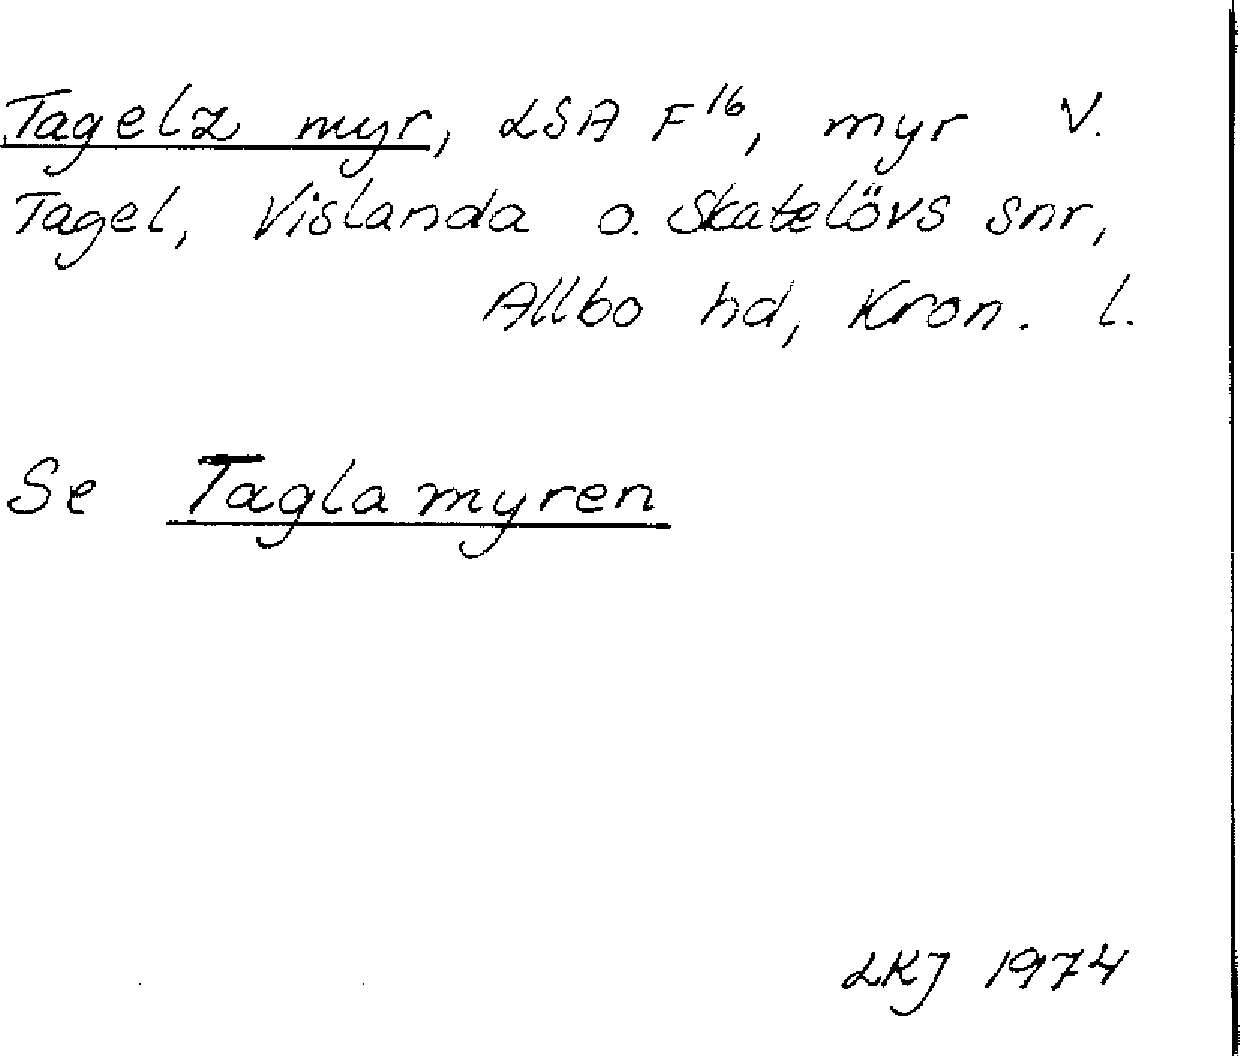 Tagelz myr, LSA F16, myr V.
Tagel, Vislanda o. Skatelövs snr,
Allbo hd, Kron. l.
Se Taglamyren
LKJ 1974